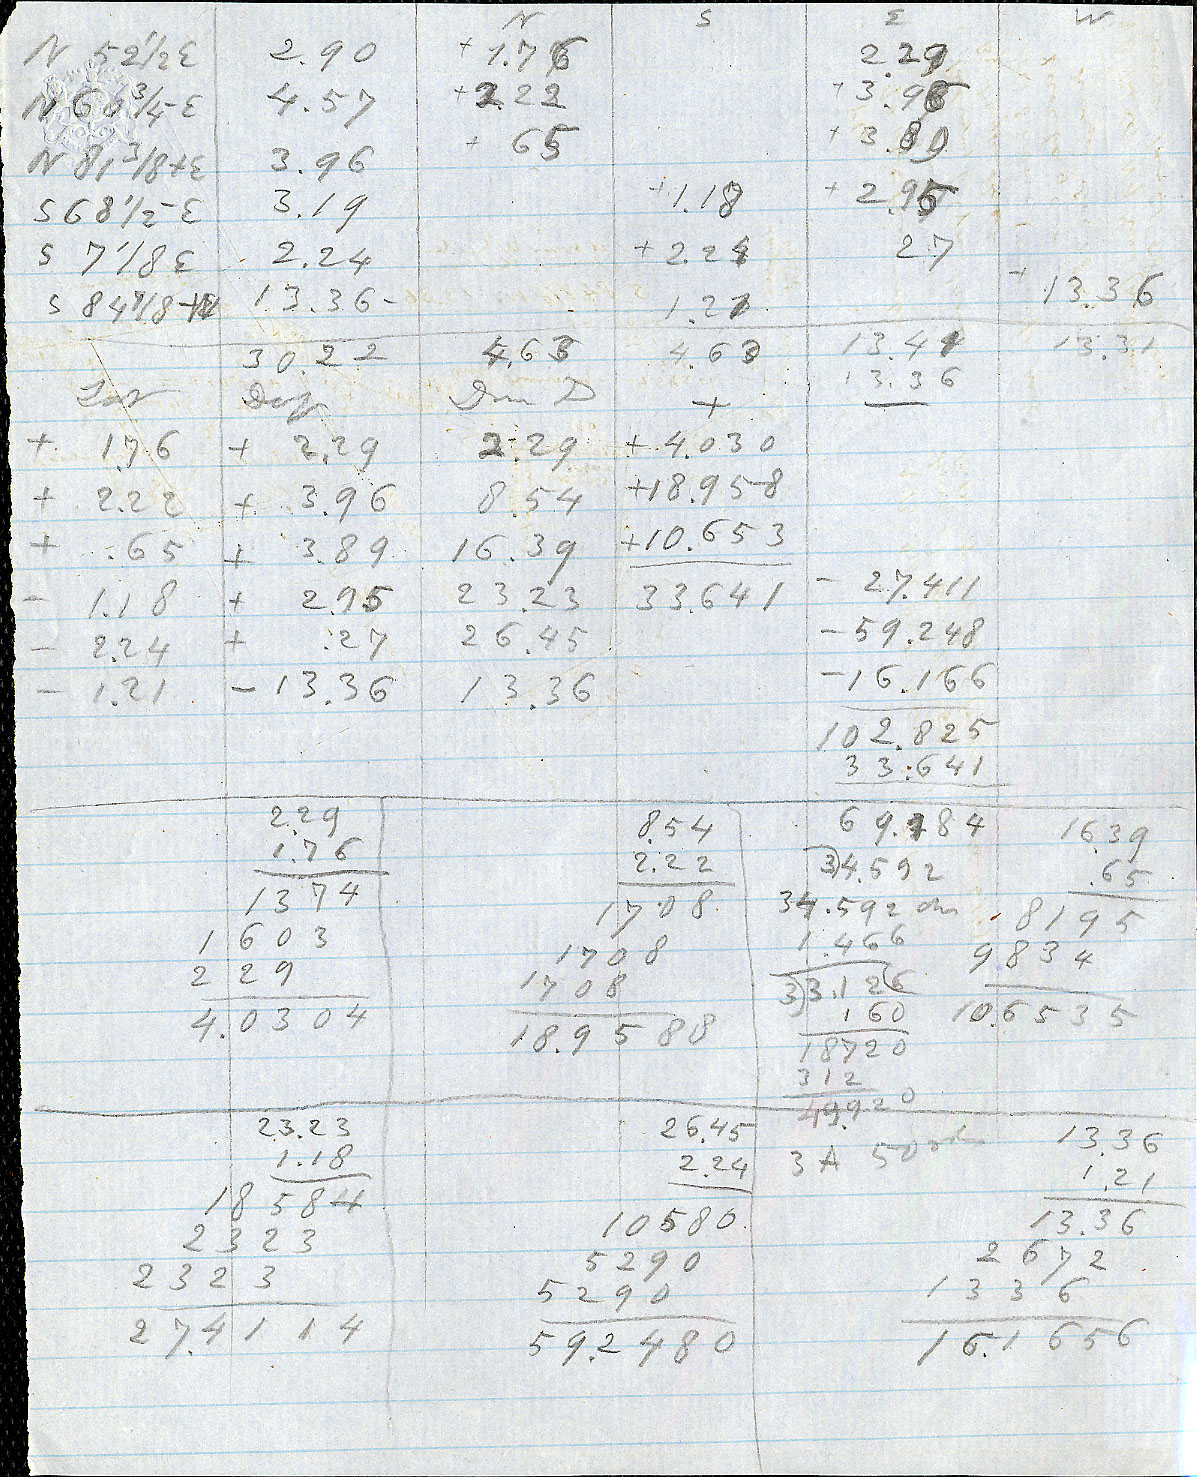 N S E W
N 52 1/2 E 2.90 + 1.76 2.29
N 60 3/4 - E 4.57 + 2.22 + 3.96
N 81 3/8 + E 3.96 + 65 + 3.89
S 68 1/2 - E 3.19 + 1.18 + 2.95
S 7 1/8 E 2.24 + 2.24 27
S 84 7/8 + W 13.36 - 1.21 + 13.36
30.22 4.63 4.63 13.41 13.31
13.36
Lat Dep Dm D +
+ 1.76 + 2.29 2.29 + 4.030
+ 2.22 + 3.96 8.54 + 18.958
+ .65 + 3.89 16.39 + 10.653
- 1.18 + 2.95 23.23 33.641 - 27.411
- 2.24 + .27 26.45 - 59.248
- 1.21 - 13.36 13.36 - 16.166
102.825
33.641
2.29 8.54 69.184 16.39
1.76 2.22 34.592 .65
1374 1708 34.592 8195
1603 1708 1.466 9834
229 1708 33.126 10.6535
4.0304 18.9588 160
18720
312
49.920
23.23 26.45 3 A 50 13.36
1.18 2.24 1.21
18584 10580 13.36
2323 5290 2672
2323 5290 1336
27.4114 59.2480 16.1656